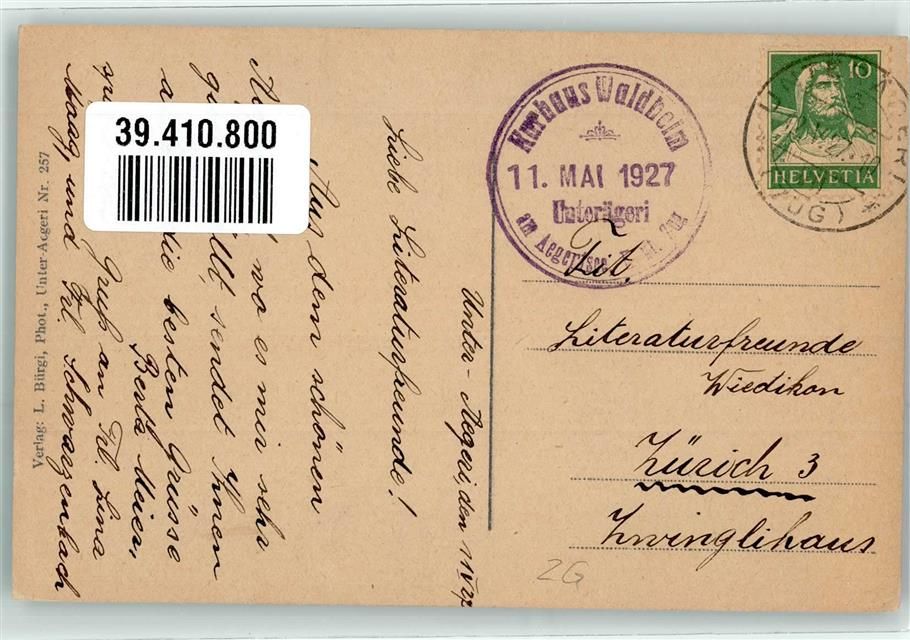 Unter-Aegeri, den 11.V.27
Liebe Literaturfreunde!
Aus dem schönen
wo es mir sehr
sendet Ihnen
die besten Grüsse
Berta Meier,
Gruß an Frl. Lina
Haag, und Frl. Schwarzenbach
Verlag: L. Bürgi, Phot., Unter-Aegeri Nr. 257
39.410.800
Kurhaus Waldheim
11. MAI 1927
Unterägeri
am Aegerisee
HELVETIA
10
(ZUG)
Tit.
Literaturfreunde
Wiedikon
Zürich 3
Zwinglihaus
ZG